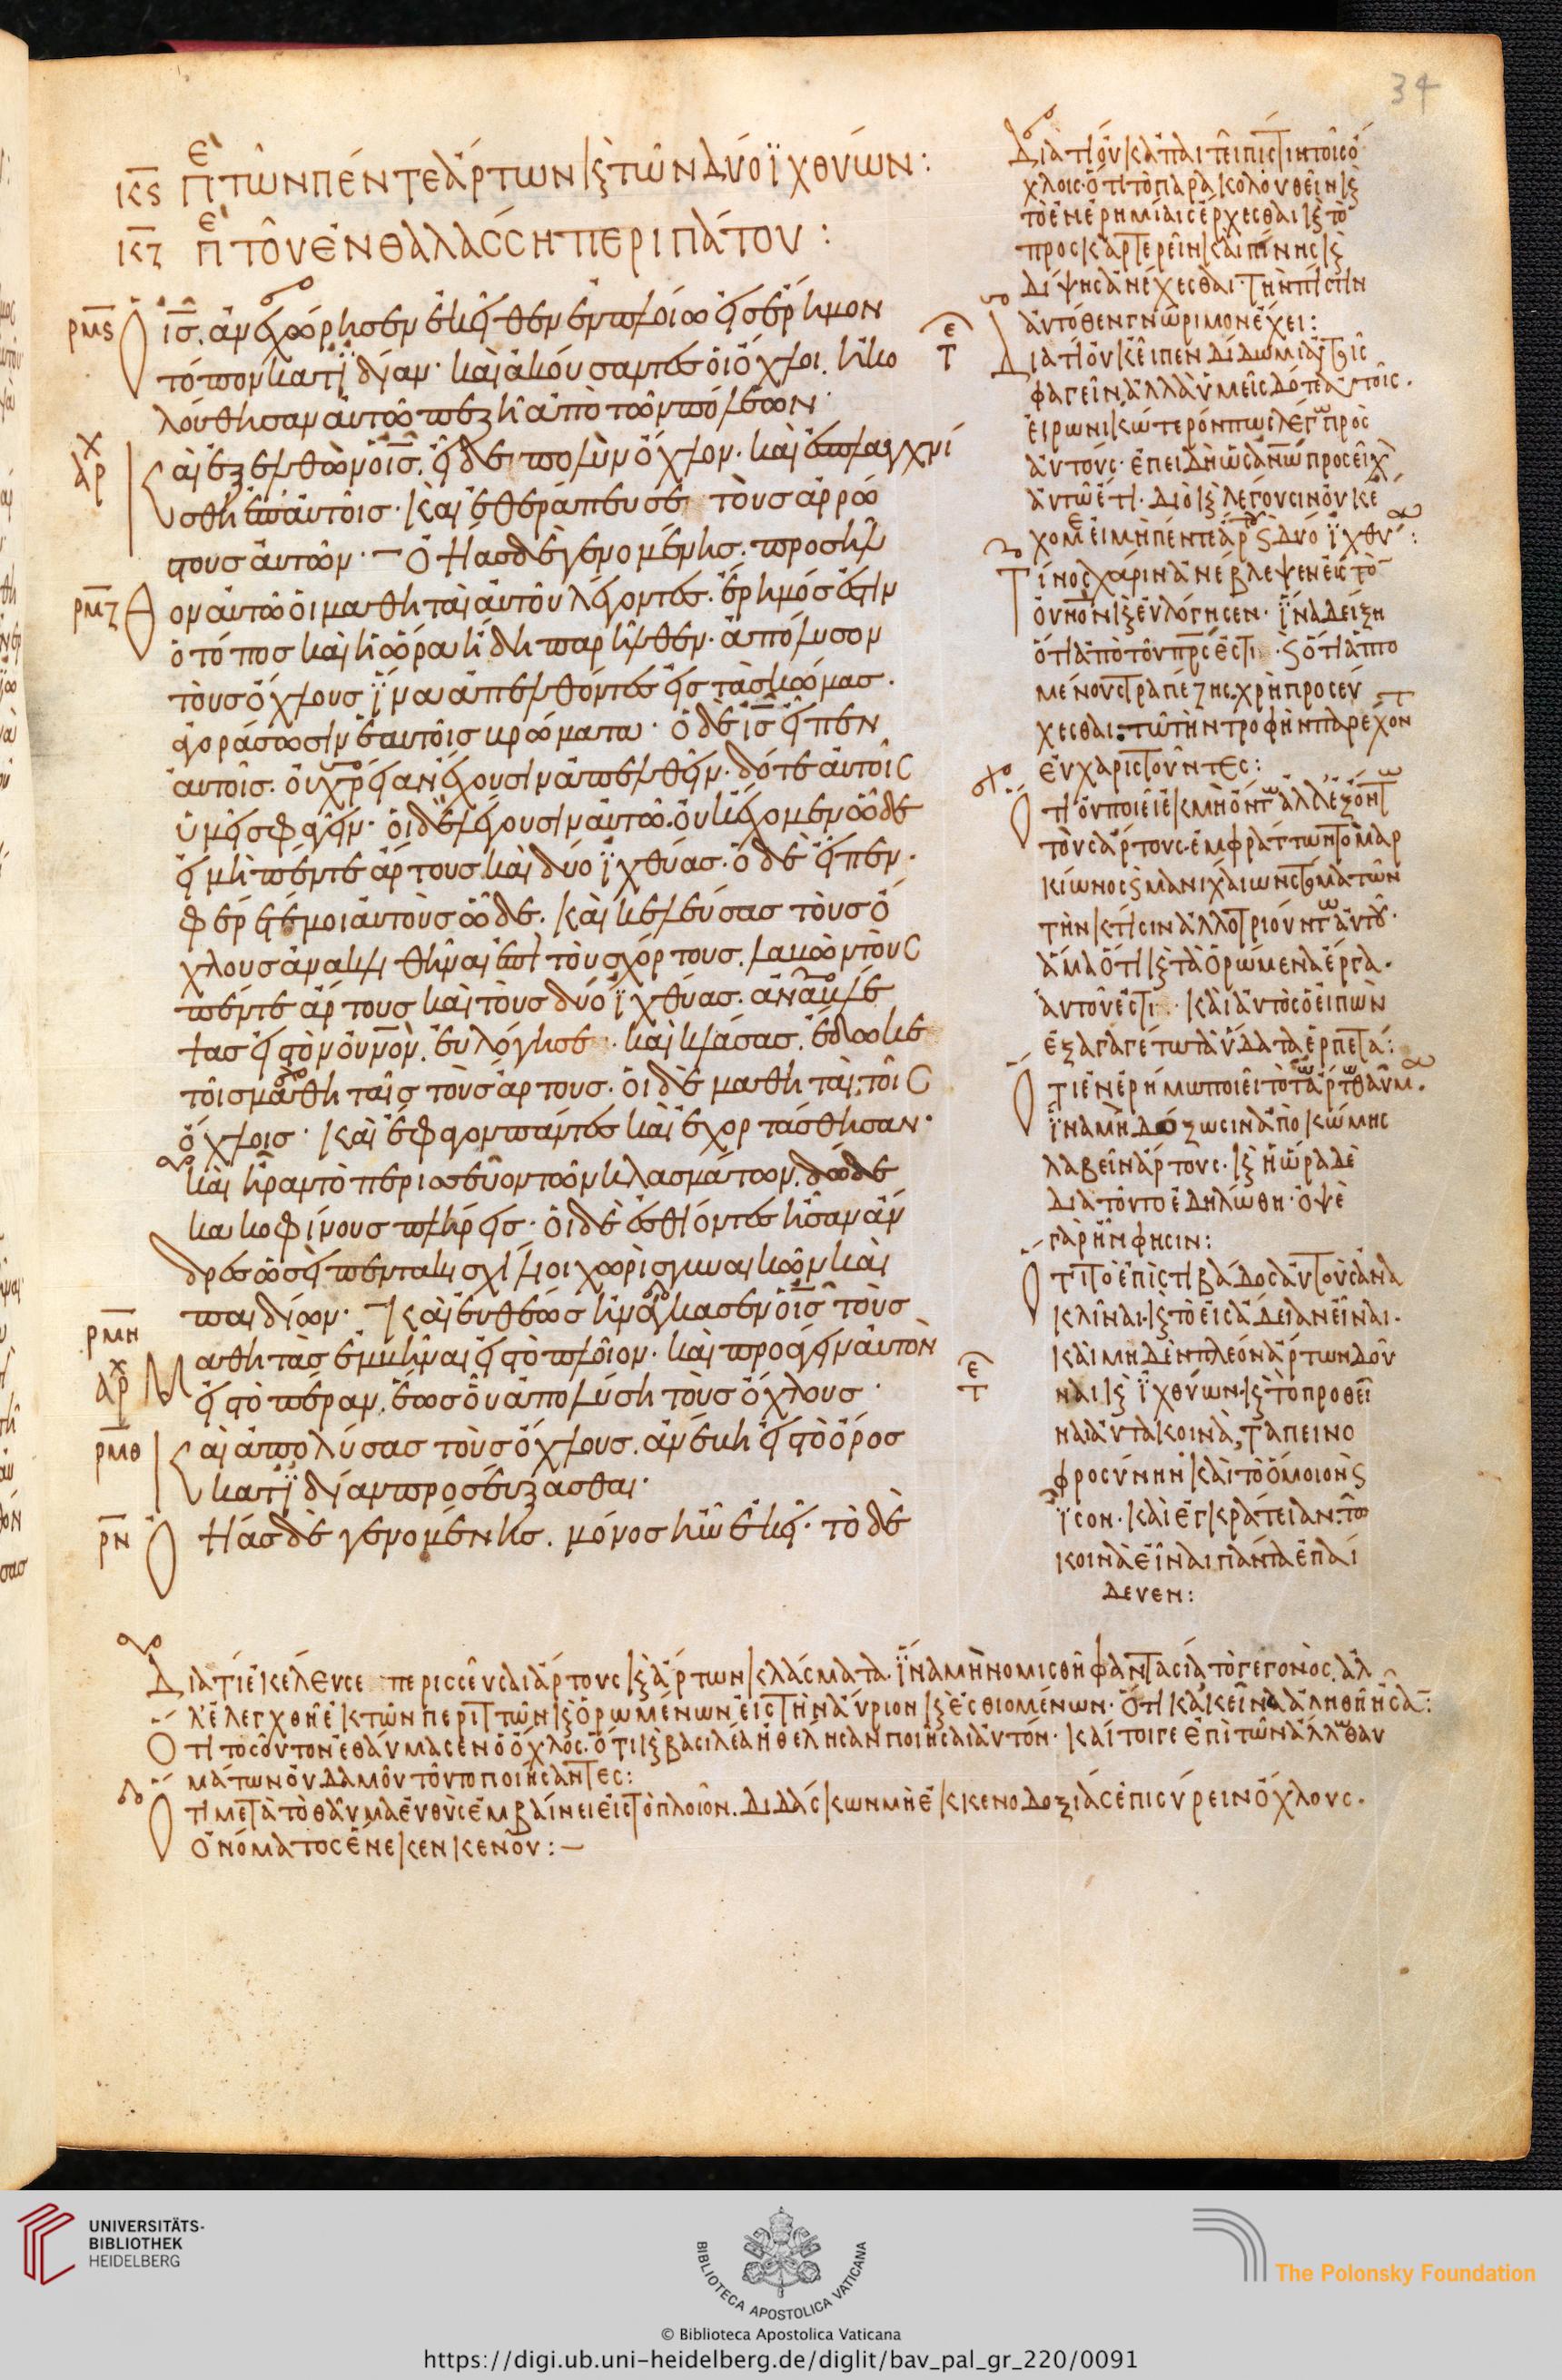 34
κϛ πε τῶν πέντε ἄρτων κ τῶν δύο ἰχθύων:
κζ πε τοῦ ἐν θαλάσσῃ περιπάτου:
ρμϛ ὁ ις. ἀνεχώρησεν ἐκεῖθεν ἐν πλοίω εἰς ἔρημον
τόπον κατ ϊδίαν· καὶ ἀκούσαντες οἱ ὄχλοι. ἠκο
λούθησαν αὐτῶ πεζῆ ἀπὸ τῶν πόλεων·
αρχ Καὶ ἐξελθὼν ὁ ις. εἶδε πολὺν ὄχλον. καὶ ἐσπλαγχνί
σθη ἐπ αὐτοῖς· καὶ ἐθεράπευσε τοὺς ἀρρώ
στους αὐτῶν· Ὀψίας δὲ γενομένης. προσῆλ
ρμζ θον αὐτῶ οἱ μαθηταὶ αὐτοῦ λέγοντες. ἔρημός ἐστιν
ὁ τόπος καὶ ἡ ὥρα ἤδη παρῆλθεν. ἀπόλυσον
τοὺς ὄχλους ἵνα ἀπελθόντες εἰς τὰς κώμας.
ἀγοράσωσιν ἑαυτοῖς βρώματα· ὁ δὲ ις εἶπεν
αὐτοῖς. οὐ χρείαν ἔχουσιν ἀπελθεῖν. δότε αὐτοῖς
ὑμεῖς φαγεῖν· οἱ δὲ λέγουσιν αὐτῶ. οὐκ ἔχομεν ὧδε
εἰ μὴ πέντε ἄρτους καὶ δύο ἰχθύας. ὁ δὲ εἶπεν.
φέρετέ μοι αὐτοὺς ὧδε. καὶ κελεύσας τοὺς ὄ
χλους ἀνακλιθῆναι ἐπὶ τοὺς χόρτους. λαβὼν τοὺς
πέντε ἄρτους καὶ τοὺς δύο ἰχθύας. ἀναβλέ
ψας εἰς τὸν οὐνον. εὐλόγησε· καὶ κλάσας. ἔδωκε
τοῖς μαθηταῖς τοὺς ἄρτους. οἱ δὲ μαθηταὶ τοῖς
ὄχλοις· καὶ ἔφαγον πάντες καὶ ἐχορτάσθησαν·
καὶ ἦραν τὸ περισσεῦον τῶν κλασμάτων. δώδε
κα κοφίνους πλήρεις· οἱ δὲ ἐσθίοντες ἦσαν ἄν
δρες ὡσεὶ πεντακισχίλιοι χωρὶς γυναικῶν καὶ
παιδίων· Καὶ εὐθέως ἠνάγκασεν ὁ ις τοὺς
ρμη Μαθητὰς ἐμβῆναι εἰς τὸ πλοῖον. καὶ προάγειν αὐτὸν
εἰς τὸ πέραν. ἕως οὗ ἀπολύσῃ τοὺς ὄχλους·
ρμθ Καὶ ἀπολύσας τοὺς ὄχλους. ἀνέβη εἰς τὸ ὄρος
κατ ϊδίαν προσεύξασθαι·
ρν Ὀψίας δὲ γενομένης. μόνος ἦν ἐκεῖ. τὸ δὲ
Διατί οὐκ ἀπαιτεῖ πίστιν τοῖς ὄ
χλοις· ὅτι τὸ παρακολουθεῖν κ
τὸ ἐν ἐρημίαις ἔρχεσθαι κ τὸ
προσκαρτερεῖν καὶ πίνης κ
δίψης ἀνέχεσθαι· τὴν πίστιν
αὐτόθεν γνώριμον ἔχει:
Διατί οὐκ εἶπεν δίδωμι αὐτοῖς
φαγεῖν ἀλλὰ ὑμεῖς δότε αὐτοῖς.
αὐτούς· ἐπειδὴ ὡς ἀνῶ προσεῖχ
αὐτῶ ἔτι· διὸ κ λέγουσιν οὐκ ἔ
χομε εἰ μὴ πέντε ἄρ ϛ δύο ἰχθυ:
Τίνος χάριν ἀνέβλεψεν εἰς τὸ
οὐνον κ εὐλόγησεν· ἵνα δείξη
ὅτι ἀπὸ τοῦ πρς ἐστι· ϛ ὅτι ἁπτο
μένους τραπέζης. χρὴ προσεύ
χεσθαι τῶ τὴν τροφὴν παρέχον
εὐχαριστοῦντες:
τοὺς ἄρτους· ἐμφράττων τὸ Μαρ
κίωνος ϛ Μανιχαίων στόμα τῶν
τὴν κτίσιν ἀλλοτριούντ αὐτοῦ·
ἅμα ὅτι κ τὰ ὁρώμενα ἔργα.
αὐτοῦ ἐστι· καὶ αὐτὸς ὁ εἰπὼν
ἐξαγαγέτω τὰ ὕδατα ἑρπετά:
ὅτι ἐν ἐρήμω ποιεῖ τὸ τ ἄρτ θαῦμ.
ἵνα μὴ δόξωσιν ἀπὸ κώμης
λαβεῖν ἄρτους· κ ἡ ὥρα δὲ
διατοῦτο ἐδηλώθη· ὀψὲ
γὰρ ἦν φησιν:
Ὅτι τὸ ἐπὶ στιβάδος αὐτοὺς ἀνα
κλῖναι. κ τὸ εἰς ἄδειαν εἶναι.
καὶ μηδὲν πλέον ἄρτων δοῦ
ναι κ ἰχθύων. κ τὸ προθεῖ
ναι αὐτὰ κοινὰ, ταπεινο
φροσύνην καὶ τὸ ὅμοιον ϛ
ἴσον· καὶ ἐγκράτειαν. τῶ
κοινὰ εἶναι πάντα ἐπαί
δευεν:
Διατί ἐκέλευσε περισσεῦσαι ἄρτους κ ἄρτων κλάσματα. ἵνα μὴ νομισθῆ φαντασία τὸ γεγονός. ἀλ
λ ἐλεγχθῆ ἐκ τῶν περιττῶν κ ὁρωμένων εἰς τὴν αὔριον κ ἐσθιομένων· ὅτι κἀκεῖνα ἀληθῆ ἦσα:
Ὅτι τοσοῦτον ἐθαύμασεν ὁ ὄχλος. ὅτι κ βασιλέα ἠθέλησαν ποιῆσαι αὐτόν· καίτοιγε ἐπὶ τῶν ἄλλ θαυ
μάτων οὐδαμοῦ τοῦτο ποιήσαντες:
Ὅτι μετὰ τὸ θαῦμα εὐθὺς ἐμβαίνει εἰς τὸ πλοῖον. διδάσκων μὴ ἐκ κενοδοξίας ἐπισύρειν ὄχλους.
ὀνόματος ἕνεκεν κενοῦ:—
UNIVERSITÄTS-
BIBLIOTHEK
HEIDELBERG
BIBLIOTECA APOSTOLICA VATICANA
The Polonsky Foundation
© Biblioteca Apostolica Vaticana
https://digi.ub.uni-heidelberg.de/diglit/bav_pal_gr_220/0091